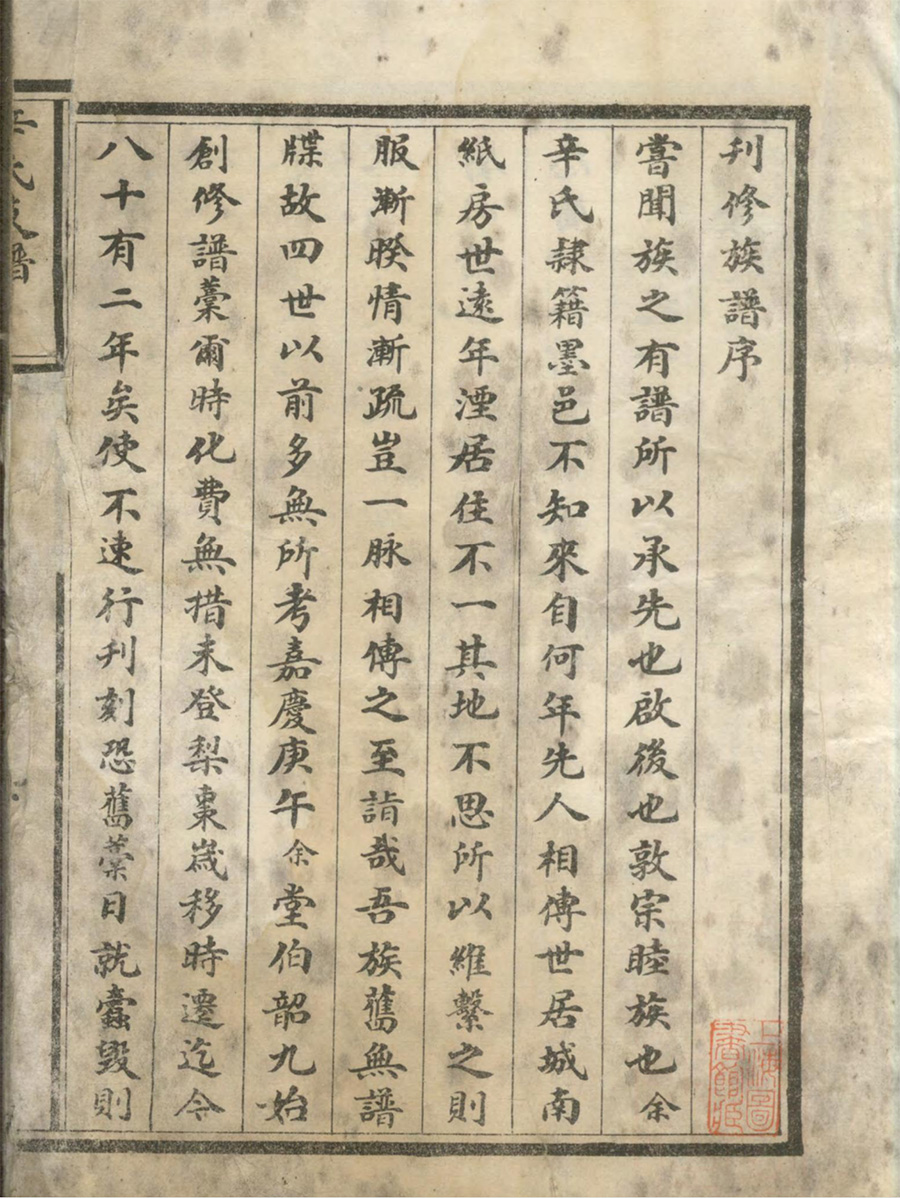 刋修族譜序
嘗聞族之有譜所以承先也啟後也敦宗睦族也余
辛氏隷籍墨邑不知來自何年先人相傳世居城南
紙房世遠年湮居住不一其地不思所以維繫之則
服漸暌情漸疏豈一脉相傳之至詣哉吾族舊無譜
牒故四世以前多無所考嘉慶庚午余堂伯韶九始
創修譜藁爾時化費無措未登梨棗歲移時遷迄今
八十有二年矣使不速行刋刻恐舊藁日就蠧毀則
辛氏支譜
上海圖書館藏